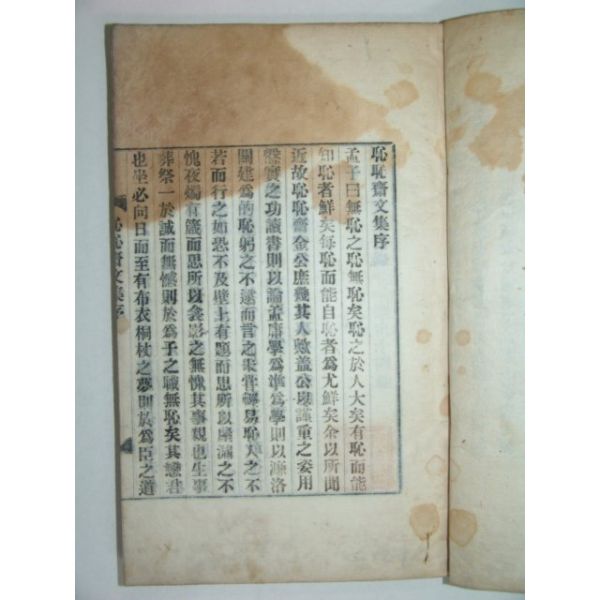 恥恥齋文集序
孟子曰無恥之恥無恥矣恥之於人大矣有恥而能
知恥者鮮矣每恥而能自恥者爲尤鮮矣余以所聞
近故恥恥齋金公庶幾其人歟蓋公以謹重之姿用
實之功讀書則以論孟庸學爲準爲學則以濂洛
關建爲的恥躬之不逮而言之未嘗易恥人之不
若而行之如恐不及壁上有題而思所以屋漏之不
愧夜燭有箴而思所以衾影之無愧其事親也生事
葬祭一於誠而無憾則於爲子之職無恥矣其戀君
也坐必向日而至有布衣桐杖之夢則於爲臣之道
恥恥齋文集序